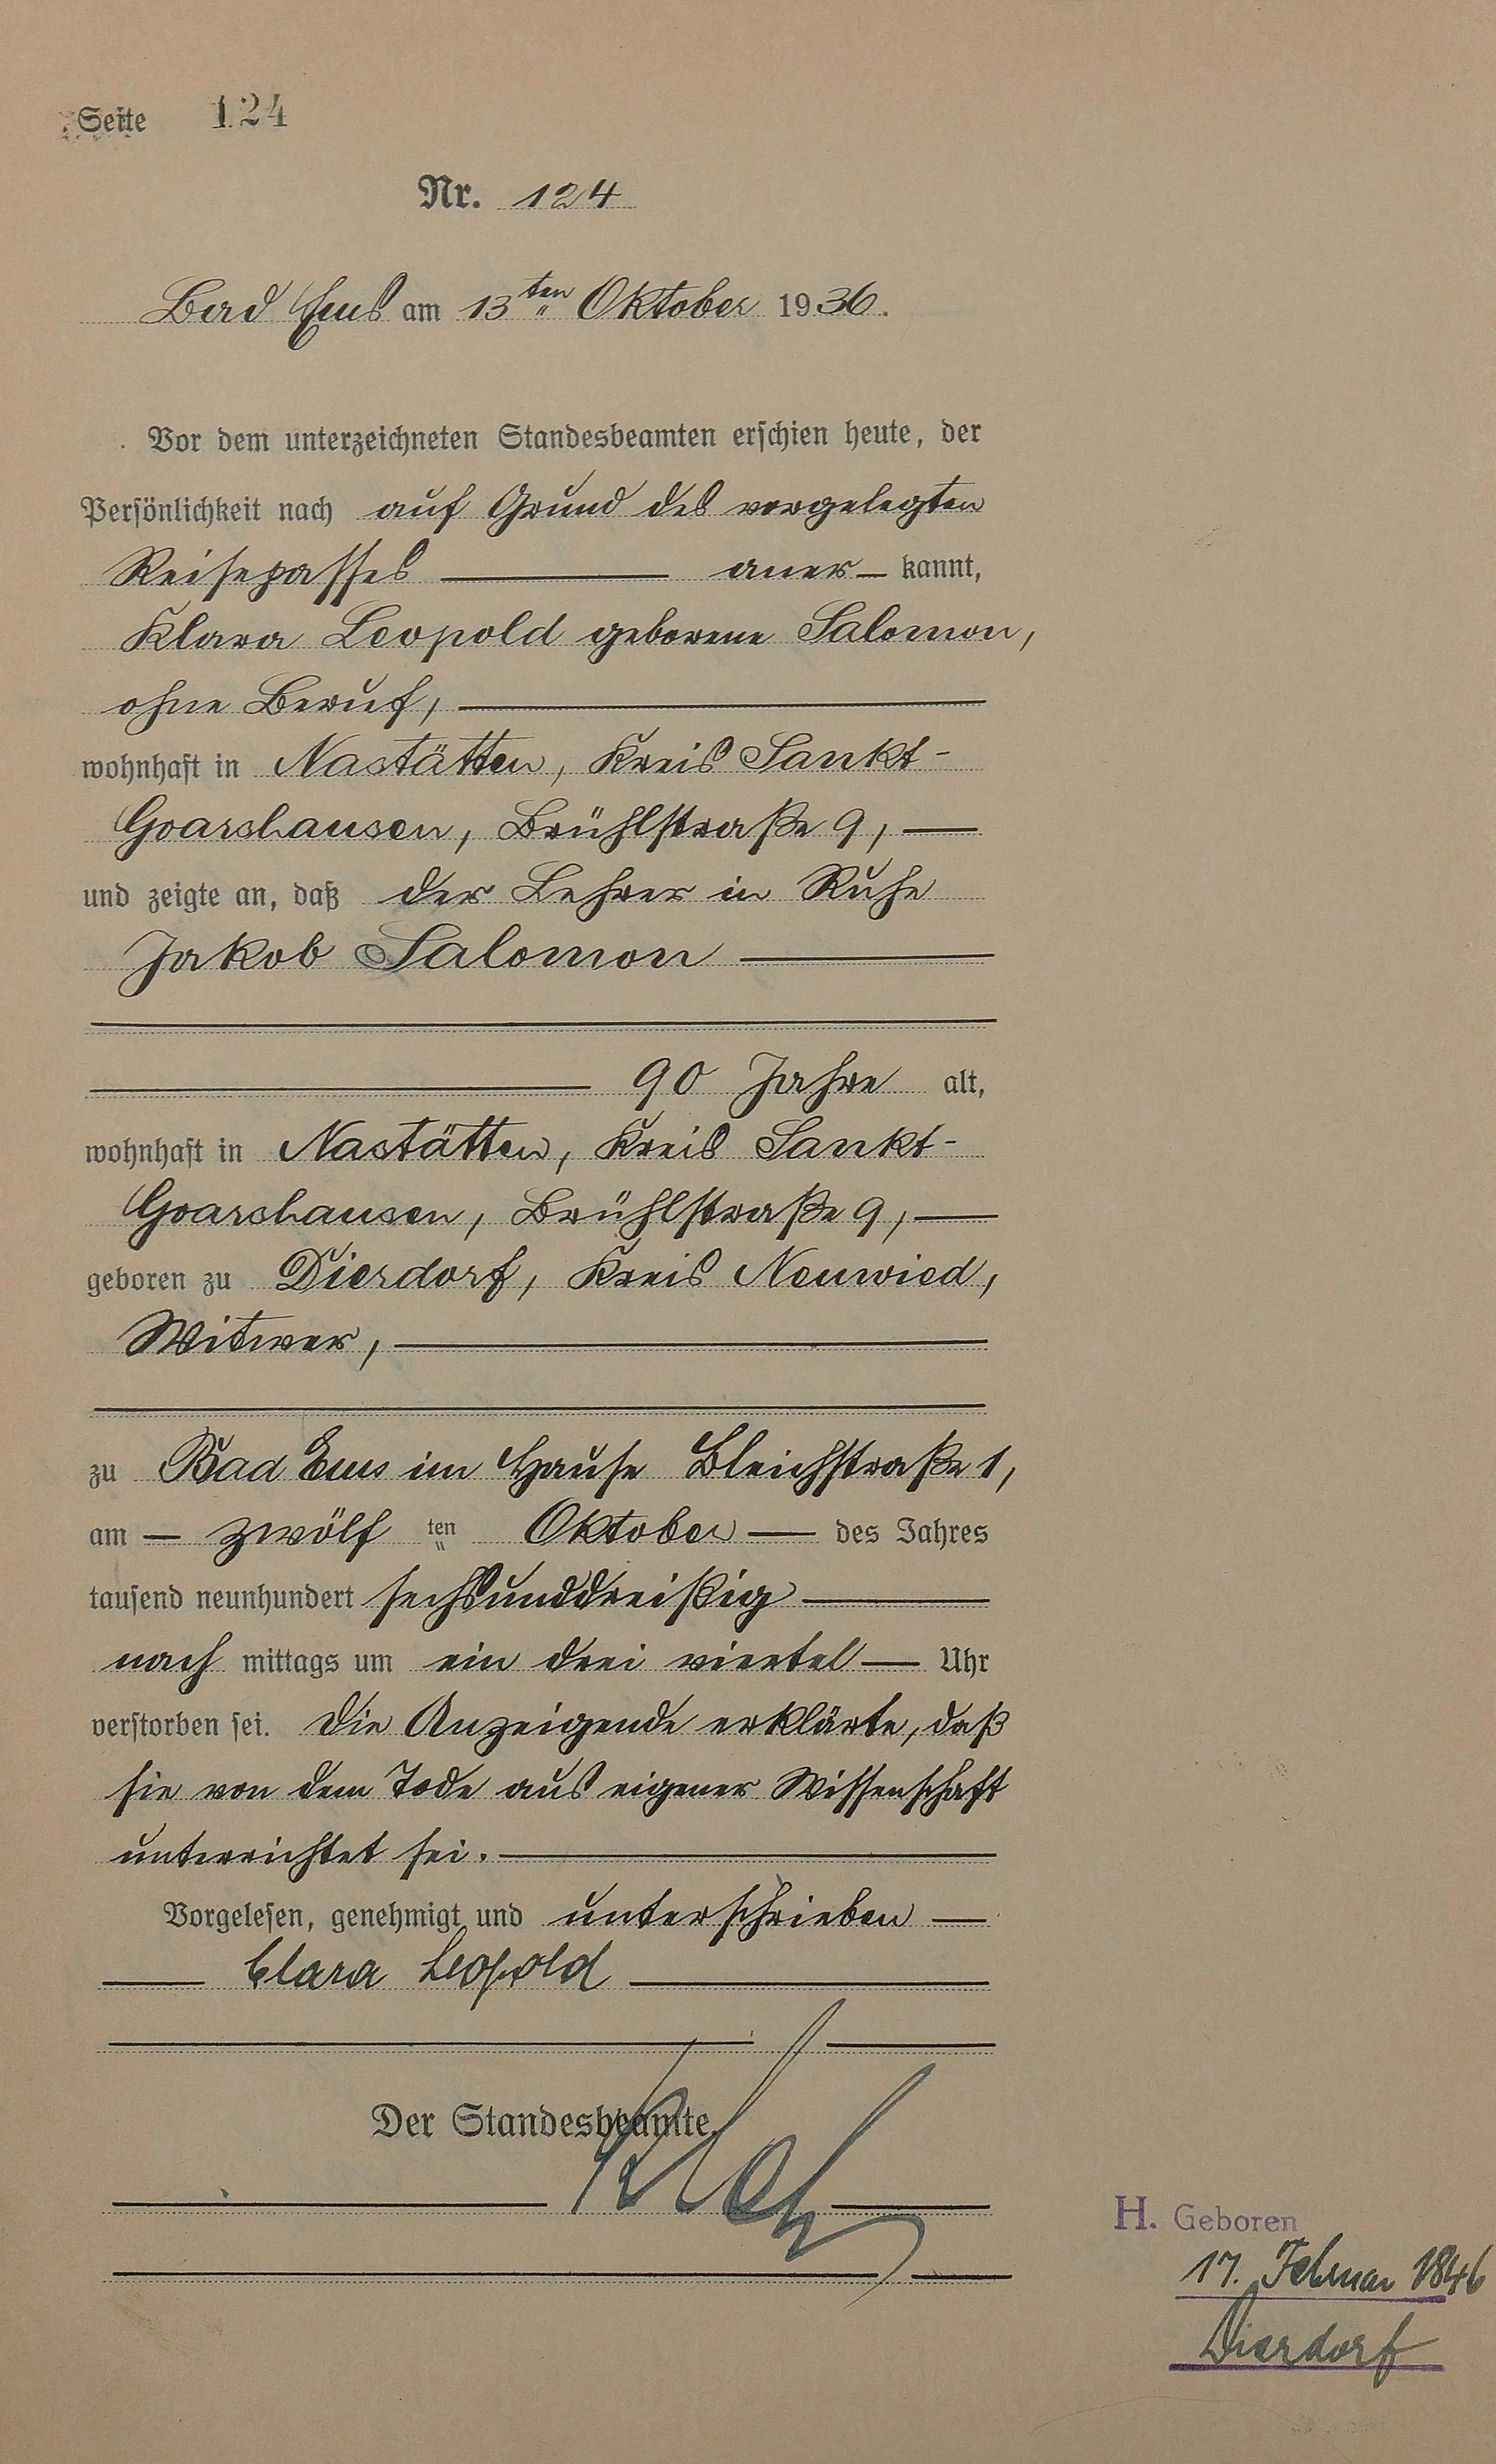 Seite 124
Nr. 124
Bad Ems am 13ten Oktober 1936.
Vor dem unterzeichneten Standesbeamten erschien heute, der
Persönlichkeit nach auf Grund des vorgelegten
Reisepasses aner- kannt,
Klara Leopold geborene Salomon,
ohne Beruf,
wohnhaft in Nastätten, Kreis Sankt-
Goarshausen, Brühlstraße 9,
und zeigte an, daß der Lehrer in Ruhe
Jakob Salomon
90 Jahre alt,
wohnhaft in Nastätten, Kreis Sankt-
Goarshausen, Brühlstraße 9,
geboren zu Dierdorf, Kreis Neuwied,
Witwer,
zu Bad Ems im Hause Bleichstraße 1,
am zwölf ten Oktober des Jahres
tausend neunhundert sechsunddreißig
nach mittags um ein drei viertel Uhr
verstorben sei. Die Anzeigende erklärte, daß
sie von dem Tode aus eigener Wissenschaft
unterrichtet sei.
Vorgelesen, genehmigt und unterschrieben
Clara Leopold
Der Standesbeamte.
H. Geboren
17. Februar 1846
Dierdorf